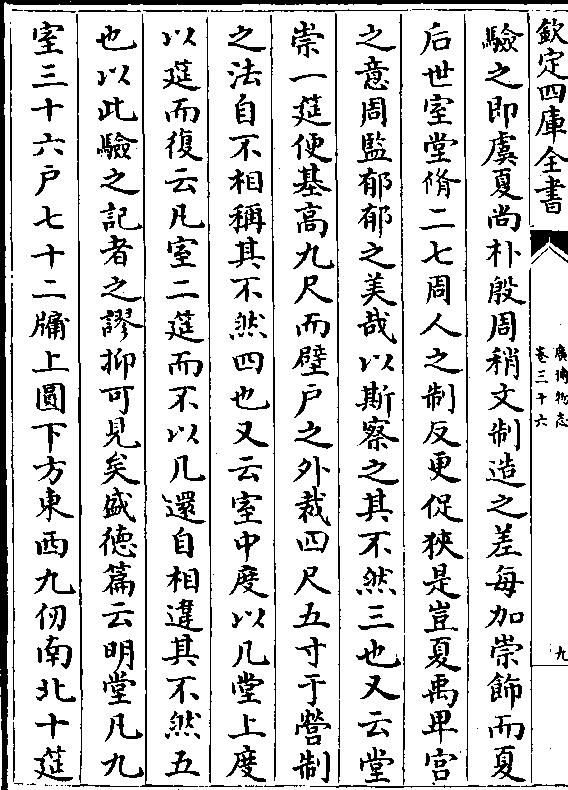 欽定四庫全書
廣博物志
卷三十六
九
驗之即虞夏尚朴殷周稍文制造之差每加崇飾而夏
后世室堂脩二七周人之制反更促狹是豈夏禹卑宮
之意周監郁郁之美哉以斯察之其不然三也又云堂
崇一筵便基高九尺而壁户之外裁四尺五寸于營制
之法自不相稱其不然四也又云室中度以几堂上度
以筵而復云凡室二筵而不以几還自相違其不然五
也以此驗之記者之謬抑可見矣盛徳篇云明堂凡九
室三十六户七十二牖上圓下方東西九仞南北十筵